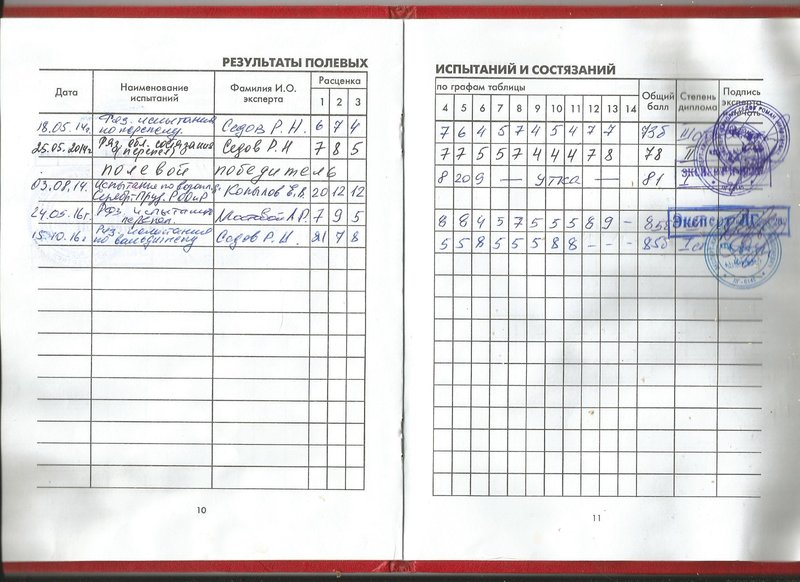 РЕЗУЛЬТАТЫ ПОЛЕВЫХ
Дата Наименование испытаний Фамилия И.О. эксперта Расценка
1 2 3
18.05.14г. Ряз. испытания по перепелу. Седов Р.Н. 6 7 4
25.05.2014г. Ряз. обл. состязания (перепел) Седов Р.Н 7 8 5
полевой победитель
03.08.14. Испытание по водопл. Копылов 20 12 12
24.05.16г. Ряз. испытания 7 9 5
15.10.16г Ряз. испытания по Седов Р.Н. 21 7 8
10
ИСПЫТАНИЙ И СОСТЯЗАНИЙ
по графам таблицы Общий балл Степень диплома Подпись эксперта
4 5 6 7 8 9 10 11 12 13 14
7 6 4 5 7 4 5 4 7 7 73б
7 7 5 5 7 4 4 4 7 8 78 II
8 20 9 — утка — 81 I
8 8 4 5 7 5 5 5 8 9 - 85б Эксперт
5 5 8 5 5 5 8 8 - - - 85б
11